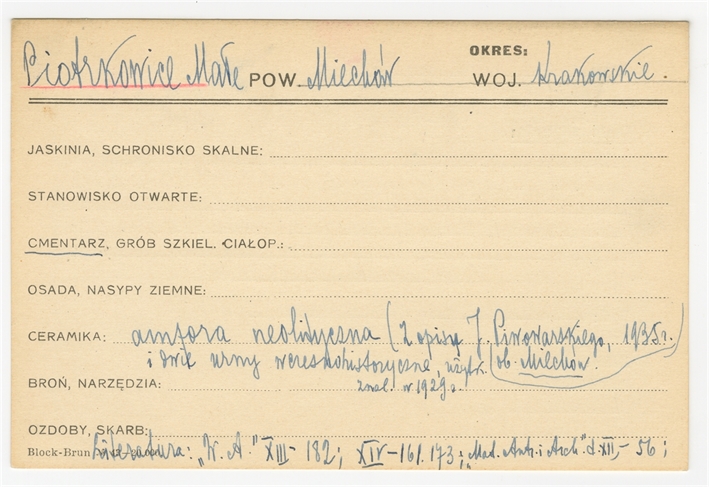 OKRES:
Piotrkowice Małe POW. Miechów WOJ. Krakowskie.
JASKINIA, SCHRONISKO SKALNE:
STANOWISKO OTWARTE:
CMENTARZ, GRÓB SZKIEL. CIAŁOP.:
OSADA, NASYPY ZIEMNE:
CERAMIKA: amfora neolityczna (z opisu J. Piwowarskiego, 1935 r.
i dwie urny wczesnohistoryczne, ob. Miechów.
BROŃ, NARZĘDZIA: znal. w 1929 r.
OZDOBY, SKARB:
Literatura: „W. A." XIII - 182; XIV - 161. 173; „Mat. Antr. i Arch." t. XII, - 56;
Block-Brun